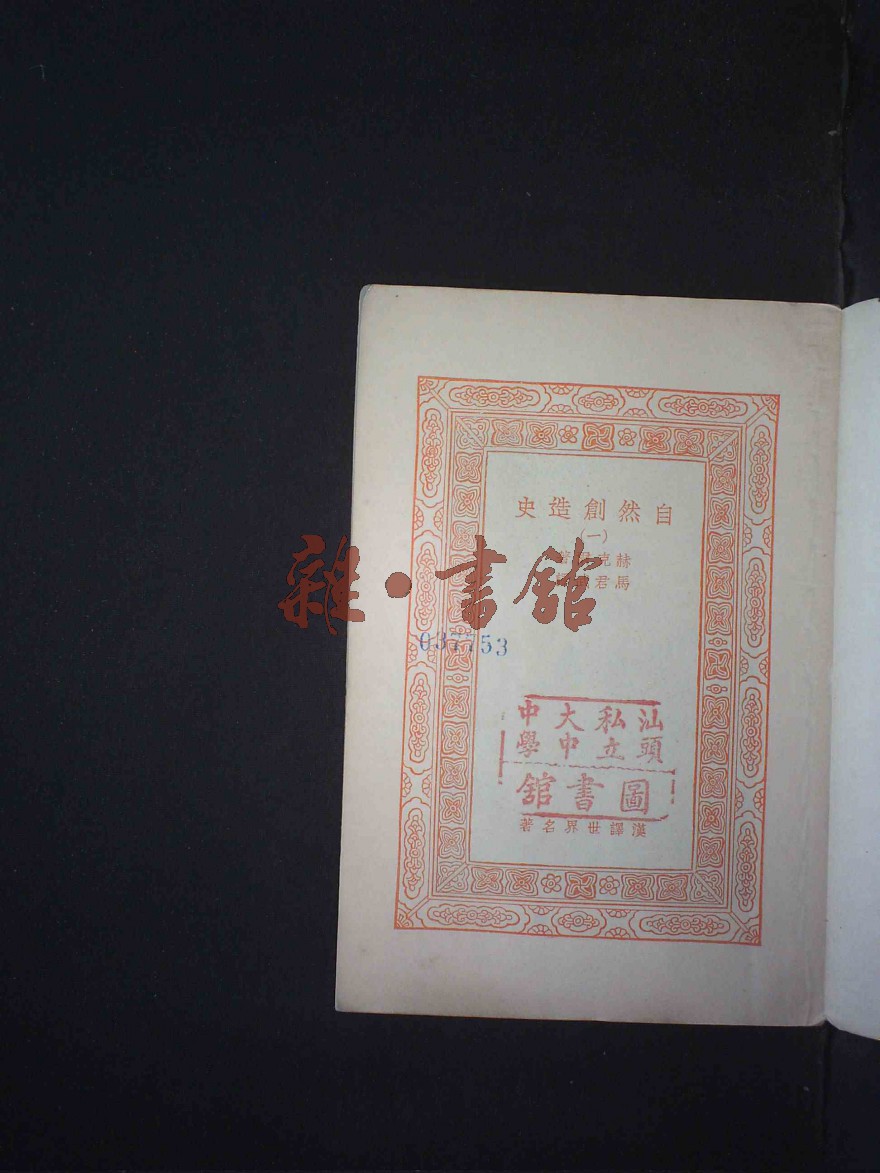 自然創造史
(一)
赫克 著
馬君
雜·書館
037753
汕頭私立大中中學
圖書館
漢譯世界名著